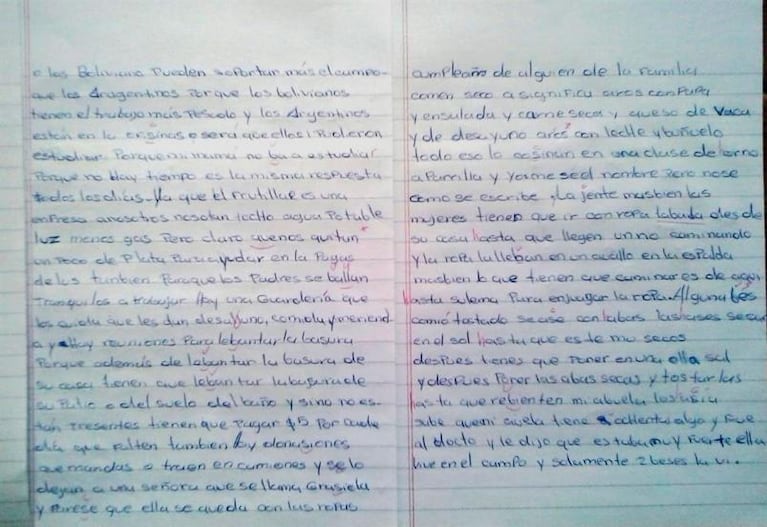 o los Boliviano Pueden soportar más el campo
que los Aragentinos Porque los bolivianos
tienen el trabajo más Pesado y los Argentinos
están en la o será que ellos Pudieron
estudiar. Porque mi mamá no ba a estudiar
Porque no Hay tiempo es la misma respuesta
todos los días. Ya que El frutillar es una
enpresa anosotros nos dan techo agua Potable
luz menos gas Pero claro quenos quitan
un Poco de Plata Para ayudar en la Pagas
de lus tanbien. Paraque los Padres se ballan
tranquilos a trabajar Hay una Guardería que
los cuida que les dan desalluno, comida y meriend
a y Hay reuniones Para lebantar la basura
Porque además de lebantar la basura de
su casa tienen que lebantar la basura de
su Patio o del suelo del baño y si no es-
tán Presentes tienen que Pagar $5 Por cada
día que falten tambien Hay donasiones
que mandas o traen en camiones y se lo
dejan a una señora que se llama Grasiela
y Parese que ella se queda con las ropas
cumpleaño de alguien de la familia
comen seco a significa aros con Papa
y ensalada y carne seca y queso de Vaca
y de desayuno aros con leche y buñuelo
todo eso lo cosinan en una clase de orno
a Parrilla y Yo me se el nombre Pero no se
como se escribe, La jente mas bien las
mujeres tienen que ir con ropa labada desde
su casa Hasta que llegen un rio caminando
y la ropa la lleban en un en la espalda
mas bien lo que tienen que caminar es de aqui
hasta Para enjuagar la ropa. Alguna bes
comio tostado se ase con labas las ases secar
en el sol Hasta que este mu secos
despues tienes que Poner en una olla sal
y despues Poner las abas secas y tostarlas
hasta que rebienten mi abuela los
sabe que mi avuela tiene algo y fue
al docto y le dijo que estaba muy fuerte ella
bive en el campo y solamente 2 beses la vi.